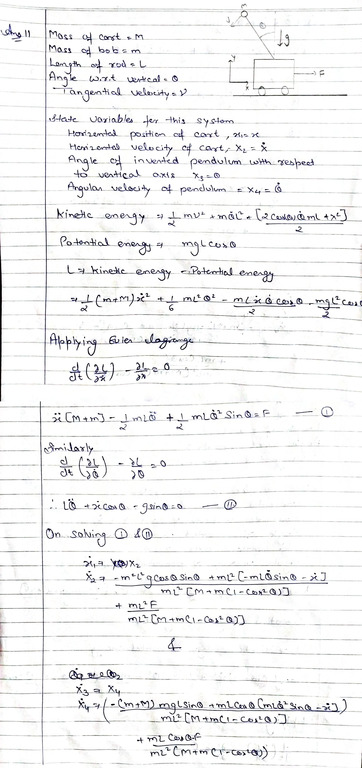 Ans 11
Mass of cart = M
Mass of bob = m
Length of rod = L
Angle w.r.t vertical = θ
Tangential velocity = V
m
θ
g
F
State variables for this system
Horizontal position of cart, x₁ = x
Horizontal velocity of cart, x₂ = ẋ
Angle of inverted pendulum with respect
to vertical axis x₃ = θ
Angular velocity of pendulum = x₄ = θ̇
Kinetic energy = 1/2 mv² + mθ̇L² + [2cosθ θ̇ mL + x²]/2
Potential energy = mgLcosθ
L = Kinetic energy - Potential energy
= 1/2 (m+M)ẋ² + 1/6 mL²θ̇² - mLẋθ̇cosθ/2 - mgL²cosθ/2
Applying Euler lagrange
d/dt (∂L/∂ẋ) - ∂L/∂x = 0
ẍ[M+m] - 1/2 mLθ̈ + 1/2 mLθ̇² Sinθ = F — I
Similarly
d/dt (∂L/∂θ̇) - ∂L/∂θ = 0
∴ Lθ̈ + ẍcosθ - gsinθ = 0 — II
On solving I & II
ẋ₁ = x₂
ẋ₂ = -m²L²gcosθsinθ + mL²[-mLθ̇sinθ - ẋ] / mL²[M+m(1-cos²θ)]
+ mL²F / mL²[M+m(1-cos²θ)]
&
ẋ₃ = x₄
ẋ₄ = (-(m+M)mgLsinθ + mLcosθ(mLθ̇²sinθ - ẋ)) / mL²[M+m(1-cos²θ)]
+ mLcosθF / mL²(M+m(1-cos²θ))